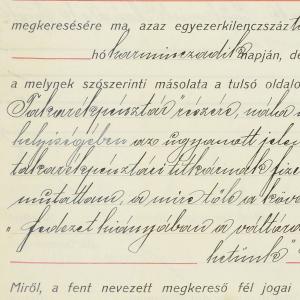 megkeresésére ma, azaz egyezerkilenczszáz t
hó harminczadik napján, de
a melynek szószerinti másolata a tulsó oldalo
Takarékpénztár" részére, ná
helyiségében az ugyanott jele
takarékpénztári titkárnak fize
mutattam, a mire tőle a köve
" fedezet hiányában a váltóra
hetünk"
Miről, a fent nevezett megkereső fél jogai